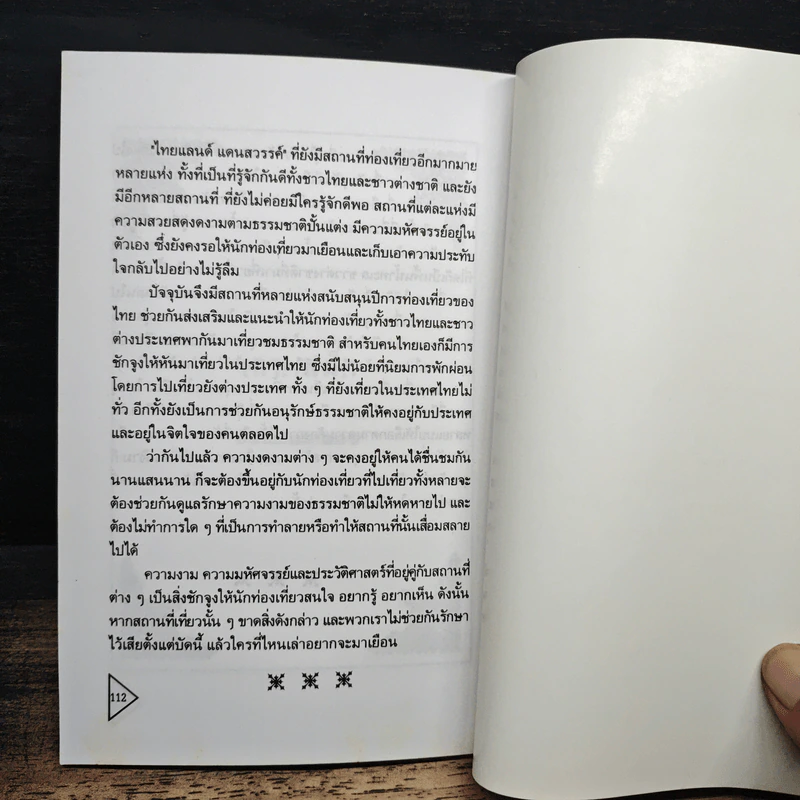 "ไทยแลนด์ แดนสวรรค์" ที่ยังมีสถานที่ท่องเที่ยวอีกมากมาย
หลายแห่ง ทั้งที่เป็นที่รู้จักกันดีทั้งชาวไทยและชาวต่างชาติ และยัง
มีอีกหลายสถานที่ ที่ยังไม่ค่อยมีใครรู้จักดีพอ สถานที่แต่ละแห่งมี
ความสวยสดงดงามตามธรรมชาติปั้นแต่ง มีความมหัศจรรย์อยู่ใน
ตัวเอง ซึ่งยังคงรอให้นักท่องเที่ยวมาเยือนและเก็บเอาความประทับ
ใจกลับไปอย่างไม่รู้ลืม
ปัจจุบันจึงมีสถานที่หลายแห่งสนับสนุนปีการท่องเที่ยวของ
ไทย ช่วยกันส่งเสริมและแนะนำให้นักท่องเที่ยวทั้งชาวไทยและชาว
ต่างประเทศพากันมาเที่ยวชมธรรมชาติ สำหรับคนไทยเองก็มีการ
ชักจูงให้หันมาเที่ยวในประเทศไทย ซึ่งมีไม่น้อยที่นิยมการพักผ่อน
โดยการไปเที่ยวยังต่างประเทศ ทั้ง ๆ ที่ยังเที่ยวในประเทศไทยไม่
ทั่ว อีกทั้งยังเป็นการช่วยกันอนุรักษ์ธรรมชาติให้คงอยู่กับประเทศ
และอยู่ในจิตใจของคนตลอดไป
ว่ากันไปแล้ว ความงดงามต่าง ๆ จะคงอยู่ให้คนได้ชื่นชมกัน
นานแสนนาน ก็จะต้องขึ้นอยู่กับนักท่องเที่ยวที่ไปเที่ยวทั้งหลายจะ
ต้องช่วยกันดูแลรักษาความงามของธรรมชาติไม่ให้หดหายไป และ
ต้องไม่ทำการใด ๆ ที่เป็นการทำลายหรือทำให้สถานที่นั้นเสื่อมสลาย
ไปได้
ความงาม ความมหัศจรรย์และประวัติศาสตร์ที่อยู่คู่กับสถานที่
ต่าง ๆ เป็นสิ่งชักจูงให้นักท่องเที่ยวสนใจ อยากรู้ อยากเห็น ดังนั้น
หากสถานที่เที่ยวนั้น ๆ ขาดสิ่งดังกล่าว และพวกเราไม่ช่วยกันรักษา
ไว้เสียตั้งแต่บัดนี้ แล้วใครที่ไหนเล่าอยากจะมาเยือน
112